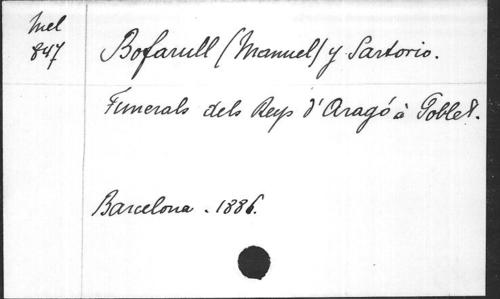 Mel
847
Bofarull (Manuel) y Sartorio.
Funerals dels Reys d'Aragó à Poblet.
Barcelona. 1886.